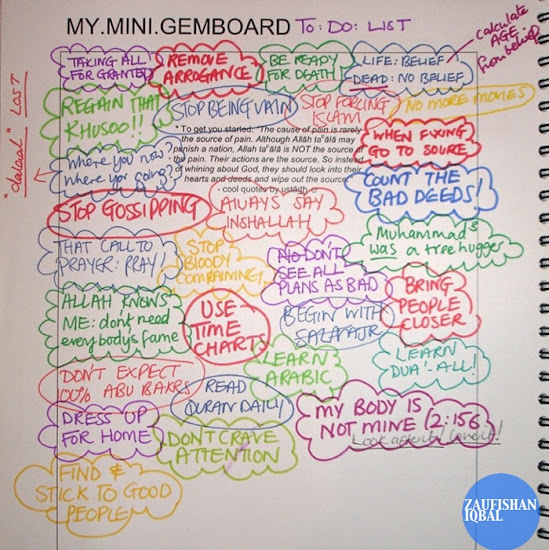 MY.MINI.GEMBOARD TO: DO: LIST
TAKING ALL
FOR GRANTED
REMOVE
ARROGANCE
BE READY
FOR DEATH
LIFE: BELIEF
DEAD: NO BELIEF
calculate
AGE
from belief
REGAIN THAT
KHUSOO!!
STOP BEING VAIN
STOP FORCING
ISLAM
NO MORE MOVIES
"declared" LOST
" To get you started: "The cause of pain is rarely
the source of pain. Although Allāh taʿālā may
punish a nation, Allah taʿālā is NOT the source of
the pain. Their actions are the source. So instead
of whining about God, they should look into their
hearts and deeds and wipe out the source."
- cool quotes by ustādh
WHEN FIXING
GO TO SOURCE
where you now
where you going?
COUNT THE
BAD DEEDS!
STOP GOSSIPPING
ALWAYS SAY
INSHALLAH
Muhammad s
was a tree hugger
THAT CALL TO
PRAYER: PRAY!
STOP
BLOODY
COMPLAINING
NO DON'T
SEE ALL
PLANS AS BAD
ALLAH KNOWS
ME: don't need
everybody's fame
USE
TIME
CHARTS
BEGIN WITH
BRING
PEOPLE
CLOSER
LEARN
ARABIC
LEARN
DUA'-ALL!
DON'T EXPECT
100% ABU BAKRS
READ
QURAN DAILY
MY BODY IS
NOT MINE (2:156
Look after it/ Love it!
DRESS UP
FOR HOME
DONT CRAVE
ATTENTION
FIND &
STICK TO GOOD
PEOPLE
ZAUFISHAN
IQBAL